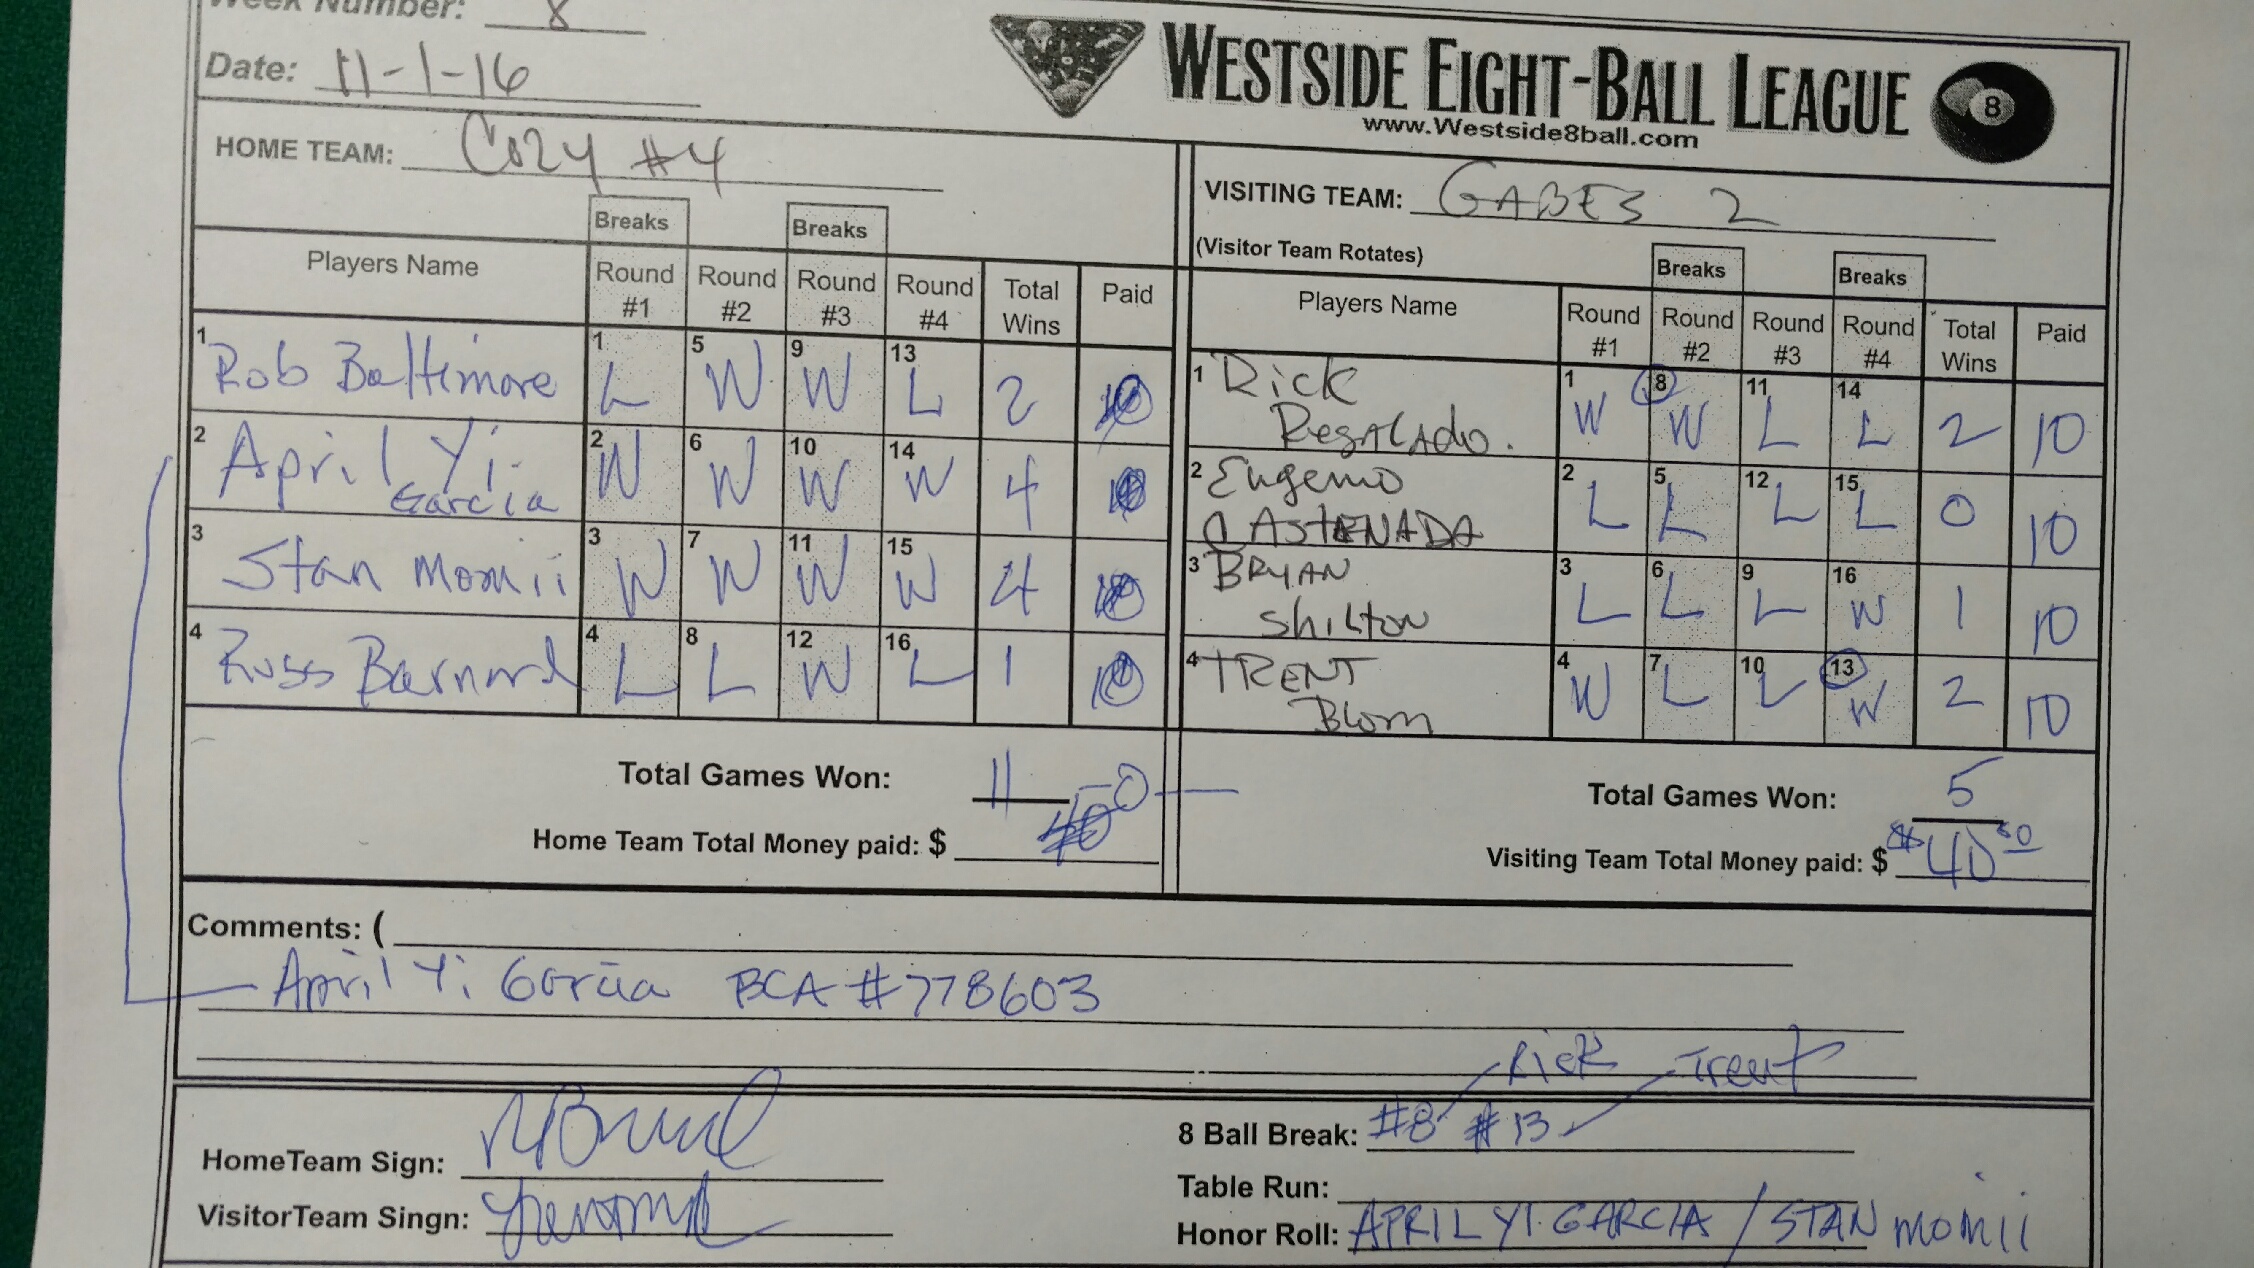 Week Number: 8
Date: 11-1-16
WESTSIDE EIGHT-BALL LEAGUE
8
www.Westside8ball.com
HOME TEAM: Cozy #4
VISITING TEAM: GABES 2
(Visitor Team Rotates)
Breaks Breaks
Players Name Round #1 Round #2 Round #3 Round #4 Total Wins Paid
1 Rob Baltimore 1 L 5 W 9 W 13 L 2
2 April Yi Garcia 2 W 6 W 10 W 14 W 4
3 Stan Momii 3 W 7 W 11 W 15 W 4
4 Russ Barnard 4 L 8 L 12 W 16 L 1
Total Games Won: 11
Home Team Total Money paid: $ 40 -0-
Breaks Breaks
Players Name Round #1 Round #2 Round #3 Round #4 Total Wins Paid
1 Rick Regalado. 1 W 8 W 11 L 14 L 2 10
2 Eugenio CASTENADA 2 L 5 L 12 L 15 L 0 10
3 BRYAN Shilton 3 L 6 L 9 L 16 W 1 10
4 TRENT Blom 4 W 7 L 10 L 13 W 2 10
Total Games Won: 5
Visiting Team Total Money paid: $ 40
Comments: (
April Yi Garcia BCA #778603
Rick Trent
HomeTeam Sign:
VisitorTeam Singn:
8 Ball Break: #8 #13
Table Run:
Honor Roll: APRIL YI GARCIA / STAN MOMII